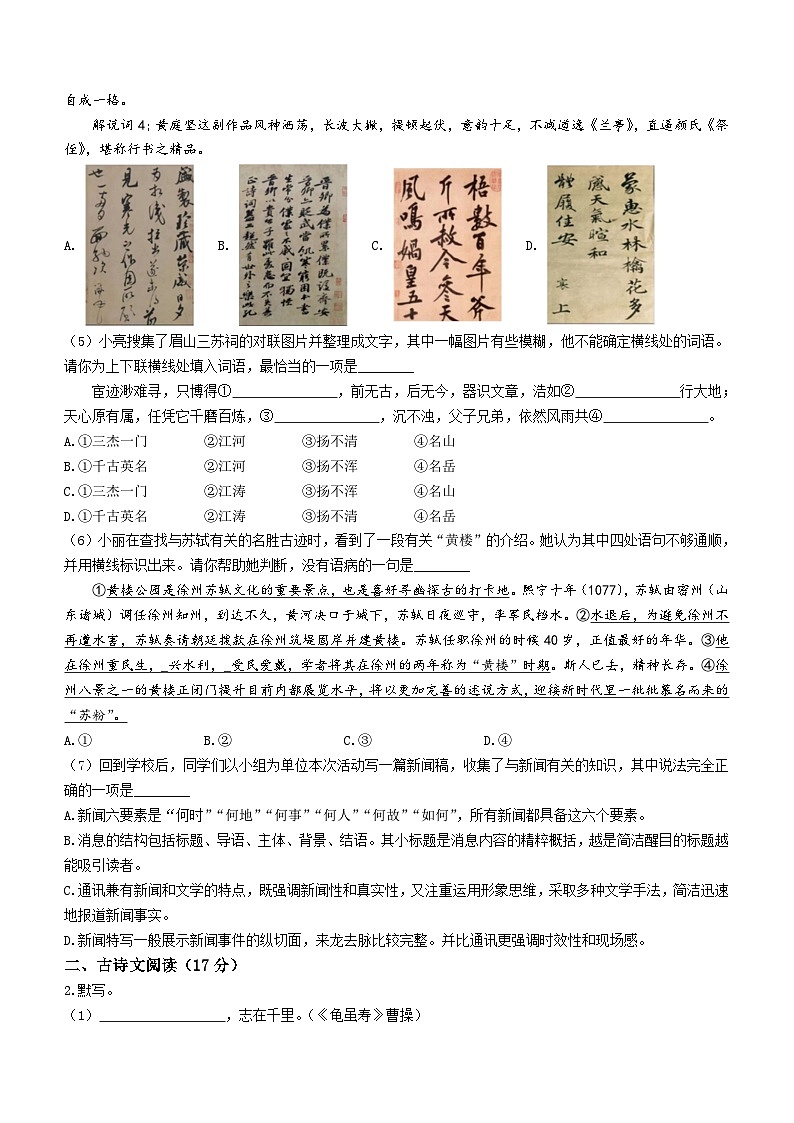 自成一格。
解说词4：黄庭坚这副作品风神洒荡，长波大撇，提顿起伏，意韵十足，不减遒逸《兰亭》，直逼颜氏《祭
侄》，堪称行书之精品。
A.
B.
C.
梧数百年斧
斤所赦今参天
风鸣娲皇五十
D.
蒙惠水林檎花多
感天气暄和
体履佳安
上
（5）小亮搜集了眉山三苏祠的对联图片并整理成文字，其中一幅图片有些模糊，他不能确定横线处的词语。
请你为上下联横线处填入词语，最恰当的一项是________
宦迹渺难寻，只博得①_______________，前无古，后无今，器识文章，浩如②_______________行大地；
天心原有属，任凭它千磨百炼，③_______________，沉不浊，父子兄弟，依然风雨共④_______________。
A.①三杰一门 ②江河 ③扬不清 ④名山
B.①千古英名 ②江河 ③扬不浑 ④名岳
C.①三杰一门 ②江涛 ③扬不浑 ④名山
D.①千古英名 ②江涛 ③扬不清 ④名岳
（6）小丽在查找与苏轼有关的名胜古迹时，看到了一段有关“黄楼”的介绍。她认为其中四处语句不够通顺，
并用横线标识出来。请你帮助她判断，没有语病的一句是________
①黄楼公园是徐州苏轼文化的重要景点，也是喜好寻幽探古的打卡地。熙宁十年（1077），苏轼由密州（山
东诸城）调任徐州知州，到达不久，黄河决口于城下，苏轼日夜巡守，率军民挡水。②水退后，为避免徐州不
再遭水害，苏轼奏请朝廷拨款在徐州筑堤固岸并建黄楼。苏轼任职徐州的时候40岁，正值最好的年华。③他
在徐州重民生，_兴水利，_受民爱戴，学者将其在徐州的两年称为“黄楼”时期。斯人已去，精神长存。④徐
州八景之一的黄楼正闭门提升目前内部展览水平，将以更加完善的述说方式，迎接新时代里一批批慕名而来的
“苏粉”。
A.① B.② C.③ D.④
（7）回到学校后，同学们以小组为单位本次活动写一篇新闻稿，收集了与新闻有关的知识，其中说法完全正
确的一项是________
A.新闻六要素是“何时”“何地”“何事”“何人”“何故”“如何”，所有新闻都具备这六个要素。
B.消息的结构包括标题、导语、主体、背景、结语。其小标题是消息内容的精粹概括，越是简洁醒目的标题越
能吸引读者。
C.通讯兼有新闻和文学的特点，既强调新闻性和真实性，又注重运用形象思维，采取多种文学手法，简洁迅速
地报道新闻事实。
D.新闻特写一般展示新闻事件的纵切面，来龙去脉比较完整。并比通讯更强调时效性和现场感。
二、古诗文阅读（17分）
2.默写。
（1）__________________，志在千里。（《龟虽寿》曹操）